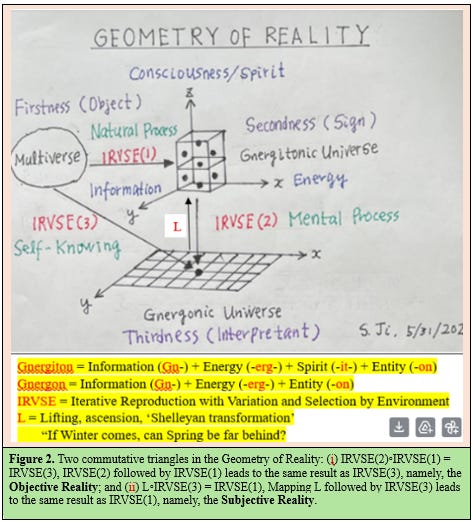 GEOMETRY OF REALITY
Consciousness/Spirit
z
Firstness (Object)
Natural Process
Secondness (Sign)
Multiverse
IRVSE(1)
Gnergitonic Universe
Information
x Energy
y
IRVSE(3)
L
IRVSE(2) Mental Process
Self-Knowing
x
y
Gnergonic Universe
Thirdness (Interpretant)
S. Ji, 5/31/202
Gnergiton = Information (Gn-) + Energy (-erg-) + Spirit (-it-) + Entity (-on)
Gnergon = Information (Gn-) + Energy (-erg-) + Entity (-on)
IRVSE = Iterative Reproduction with Variation and Selection by Environment
L = Lifting, ascension, ‘Shelleyan transformation’
“If Winter comes, can Spring be far behind?
Figure 2. Two commutative triangles in the Geometry of Reality: (i) IRVSE(2)∘IRVSE(1) =
IRVSE(3), IRVSE(2) followed by IRVSE(1) leads to the same result as IRVSE(3), namely, the
Objective Reality; and (ii) L∘IRVSE(3) = IRVSE(1), Mapping L followed by IRVSE(3) leads
to the same result as IRVSE(1), namely, the Subjective Reality.